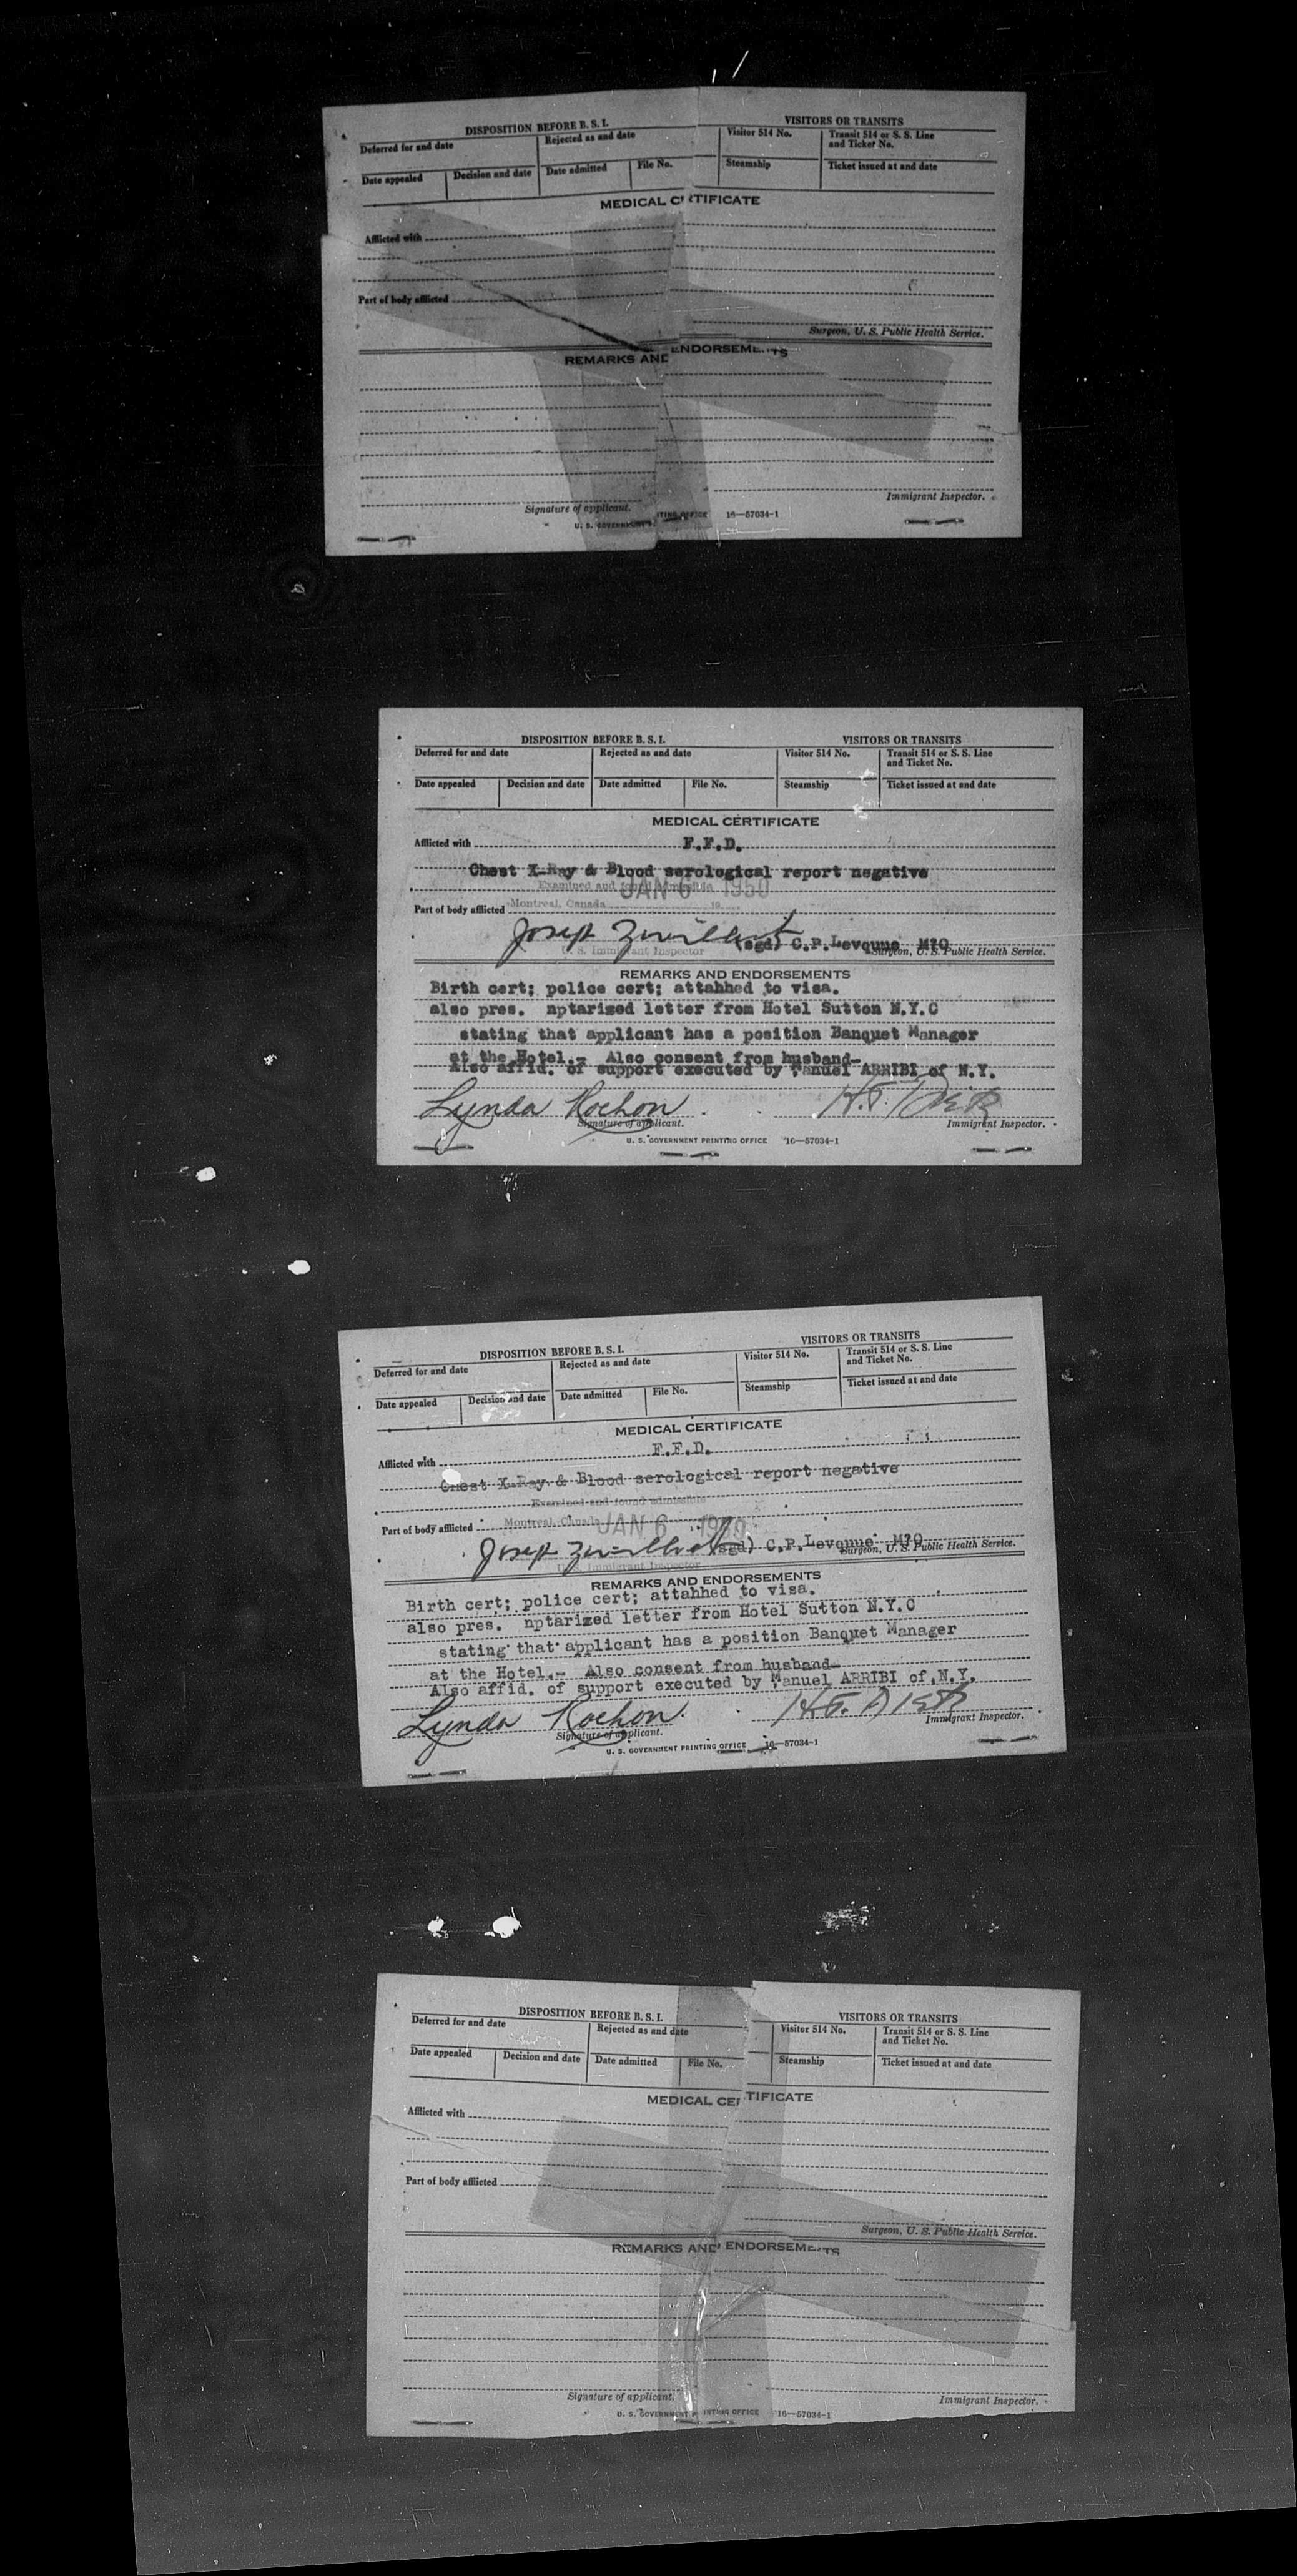 DISPOSITION BEFORE B. S. I. VISITORS OR TRANSITS
Deferred for and date Rejected as and date Visitor 514 No. Transit 514 or S. S. Line and Ticket No.
Date appealed Decision and date Date admitted File No. Steamship Ticket issued at and date
MEDICAL C TIFICATE
Afflicted with
Part of body afflicted
Surgeon, U. S. Public Health Service.
REMARKS AND ENDORSEME TS
Signature of applicant. Immigrant Inspector.
U. S. GOVERNMENT TING OFFICE 16—57034-1
DISPOSITION BEFORE B. S. I. VISITORS OR TRANSITS
Deferred for and date Rejected as and date Visitor 514 No. Transit 514 or S. S. Line and Ticket No.
Date appealed Decision and date Date admitted File No. Steamship Ticket issued at and date
MEDICAL CERTIFICATE
Afflicted with F.F.D.
Chest X-Ray & Blood serological report negative
Examined and found admissible
JAN 6 1950
Part of body afflicted Montreal, Canada 19
Joseph (sgd) C.P. Levequue M?O
U. S. Immigrant Inspector Surgeon, U. S. Public Health Service.
REMARKS AND ENDORSEMENTS
Birth cert; police cert; attahhed to visa.
also pres. nptarized letter from Hotel Sutton N.Y.C
stating that applicant has a position Banquet Manager
at the Hotel.- Also consent from husband-
Also affid. of support executed by Manuel ARRIBI of N.Y.
Lynda Rochon
Signature of applicant. Immigrant Inspector.
U. S. GOVERNMENT PRINTING OFFICE 16—57034-1
DISPOSITION BEFORE B. S. I. VISITORS OR TRANSITS
Deferred for and date Rejected as and date Visitor 514 No. Transit 514 or S. S. Line and Ticket No.
Date appealed Decision and date Date admitted File No. Steamship Ticket issued at and date
MEDICAL CERTIFICATE
Afflicted with F.F.D.
Chest X-Ray & Blood serological report negative
Examined and found admissible
Part of body afflicted Montreal, Canada JAN 6 1950
Joseph (sgd) C.P. Levequue M?O
U. S. Immigrant Inspector Surgeon, U. S. Public Health Service.
REMARKS AND ENDORSEMENTS
Birth cert; police cert; attahhed to visa.
also pres. nptarized letter from Hotel Sutton N.Y.C
stating that applicant has a position Banquet Manager
at the Hotel.- Also consent from husband-
Also affid. of support executed by Manuel ARRIBI of N.Y.
Lynda Rochon
Signature of applicant. Immigrant Inspector.
U. S. GOVERNMENT PRINTING OFFICE 16—57034-1
DISPOSITION BEFORE B. S. I. VISITORS OR TRANSITS
Deferred for and date Rejected as and date Visitor 514 No. Transit 514 or S. S. Line and Ticket No.
Date appealed Decision and date Date admitted File No. Steamship Ticket issued at and date
MEDICAL CE TIFICATE
Afflicted with
Part of body afflicted
Surgeon, U. S. Public Health Service.
REMARKS AND ENDORSEME TS
Signature of applicant. Immigrant Inspector.
U. S. GOVERNMENT P INTING OFFICE 16—57034-1